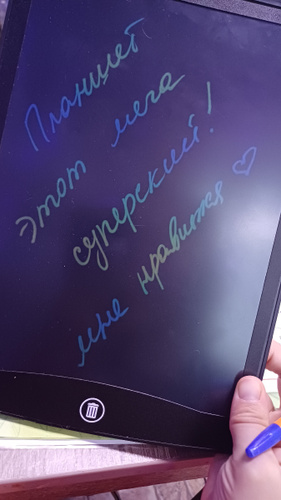 Планшет
этот мега
суперский!
мне нравится ♡